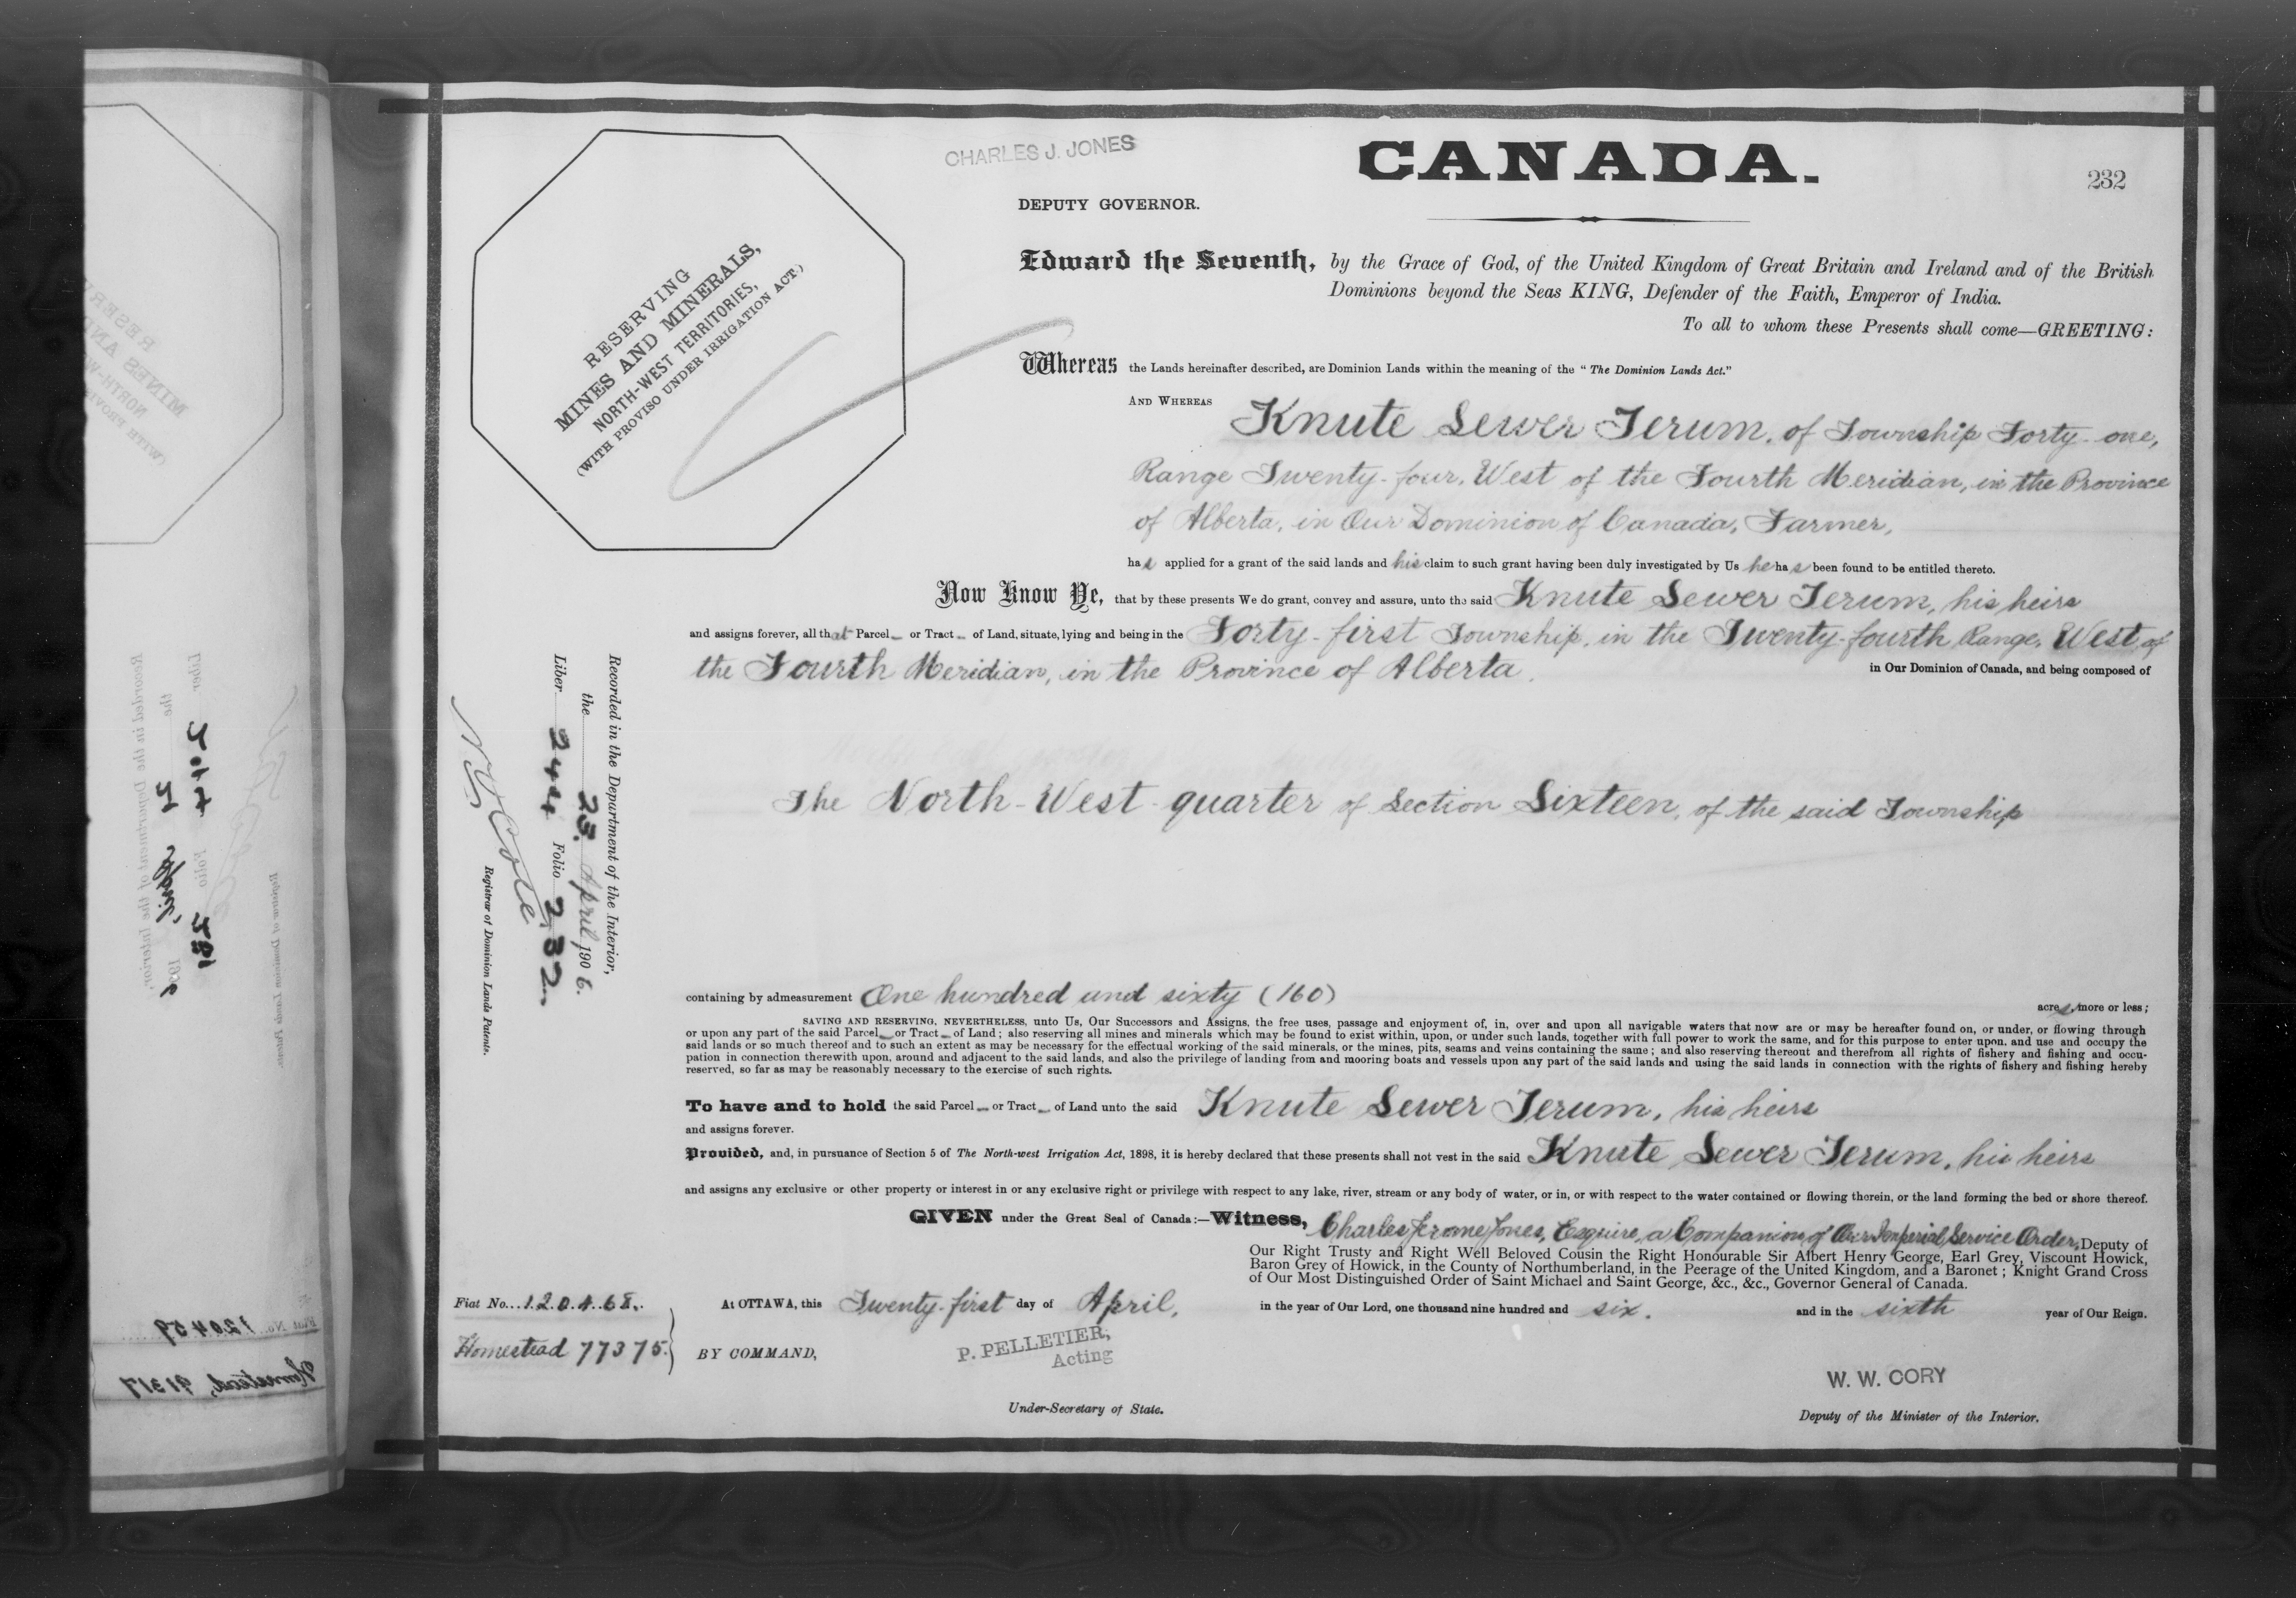 CHARLES J. JONES
CANADA.
232
DEPUTY GOVERNOR.
RESERVING
MINES AND MINERALS,
NORTH-WEST TERRITORIES,
(WITH PROVISO UNDER IRRIGATION ACT.)
Edward the Seventh, by the Grace of God, of the United Kingdom of Great Britain and Ireland and of the British
Dominions beyond the Seas KING, Defender of the Faith, Emperor of India.
To all to whom these Presents shall come—GREETING:
Whereas the Lands hereinafter described, are Dominion Lands within the meaning of the "The Dominion Lands Act."
AND WHEREAS Knute Sewer Jerum, of Township Forty-one,
Range Twenty-four, West of the Fourth Meridian, in the Province
of Alberta, in Our Dominion of Canada, Farmer,
has applied for a grant of the said lands and his claim to such grant having been duly investigated by Us he has been found to be entitled thereto.
Now Know Ye, that by these presents We do grant, convey and assure, unto the said Knute Sewer Jerum, his heirs
and assigns forever, all that Parcel or Tract of Land, situate, lying and being in the Forty-first Township, in the Twenty-fourth Range, West of
the Fourth Meridian, in the Province of Alberta, in Our Dominion of Canada, and being composed of
The North-West-quarter of Section Sixteen, of the said Township
containing by admeasurement One hundred and sixty (160) acres, more or less;
SAVING AND RESERVING, NEVERTHELESS, unto Us, Our Successors and Assigns, the free uses, passage and enjoyment of, in, over and upon all navigable waters that now are or may be hereafter found on, or under, or flowing through
or upon any part of the said Parcel or Tract of Land; also reserving all mines and minerals which may be found to exist within, upon, or under such lands, together with full power to work the same, and for this purpose to enter upon, and use and occupy the
said lands or so much thereof and to such an extent as may be necessary for the effectual working of the said minerals, or the mines, pits, seams and veins containing the same; and also reserving thereout and therefrom all rights of fishery and fishing and occu-
pation in connection therewith upon, around and adjacent to the said lands, and also the privilege of landing from and mooring boats and vessels upon any part of the said lands and using the said lands in connection with the rights of fishery and fishing hereby
reserved, so far as may be reasonably necessary to the exercise of such rights.
To have and to hold the said Parcel or Tract of Land unto the said Knute Sewer Jerum, his heirs
and assigns forever.
Provided, and, in pursuance of Section 5 of The North-west Irrigation Act, 1898, it is hereby declared that these presents shall not vest in the said Knute Sewer Jerum, his heirs
and assigns any exclusive or other property or interest in or any exclusive right or privilege with respect to any lake, river, stream or any body of water, or in, or with respect to the water contained or flowing therein, or the land forming the bed or shore thereof.
GIVEN under the Great Seal of Canada:—Witness, Charles Jerome Jones, Esquire, a Companion of Our Imperial Service Order, Deputy of
Our Right Trusty and Right Well Beloved Cousin the Right Honourable Sir Albert Henry George, Earl Grey, Viscount Howick,
Baron Grey of Howick, in the County of Northumberland, in the Peerage of the United Kingdom, and a Baronet; Knight Grand Cross
of Our Most Distinguished Order of Saint Michael and Saint George, &c., &c., Governor General of Canada.
At OTTAWA, this Twenty-first day of April, in the year of Our Lord, one thousand nine hundred and six. and in the sixth year of Our Reign.
BY COMMAND,
P. PELLETIER,
Acting
Under-Secretary of State.
W. W. CORY
Deputy of the Minister of the Interior.
Fiat No. 120468.
Homestead 77375.
Recorded in the Department of the Interior,
the 23. April 1906.
Liber 244 Folio 232.
N O Cote
Registrar of Dominion Lands Patents.